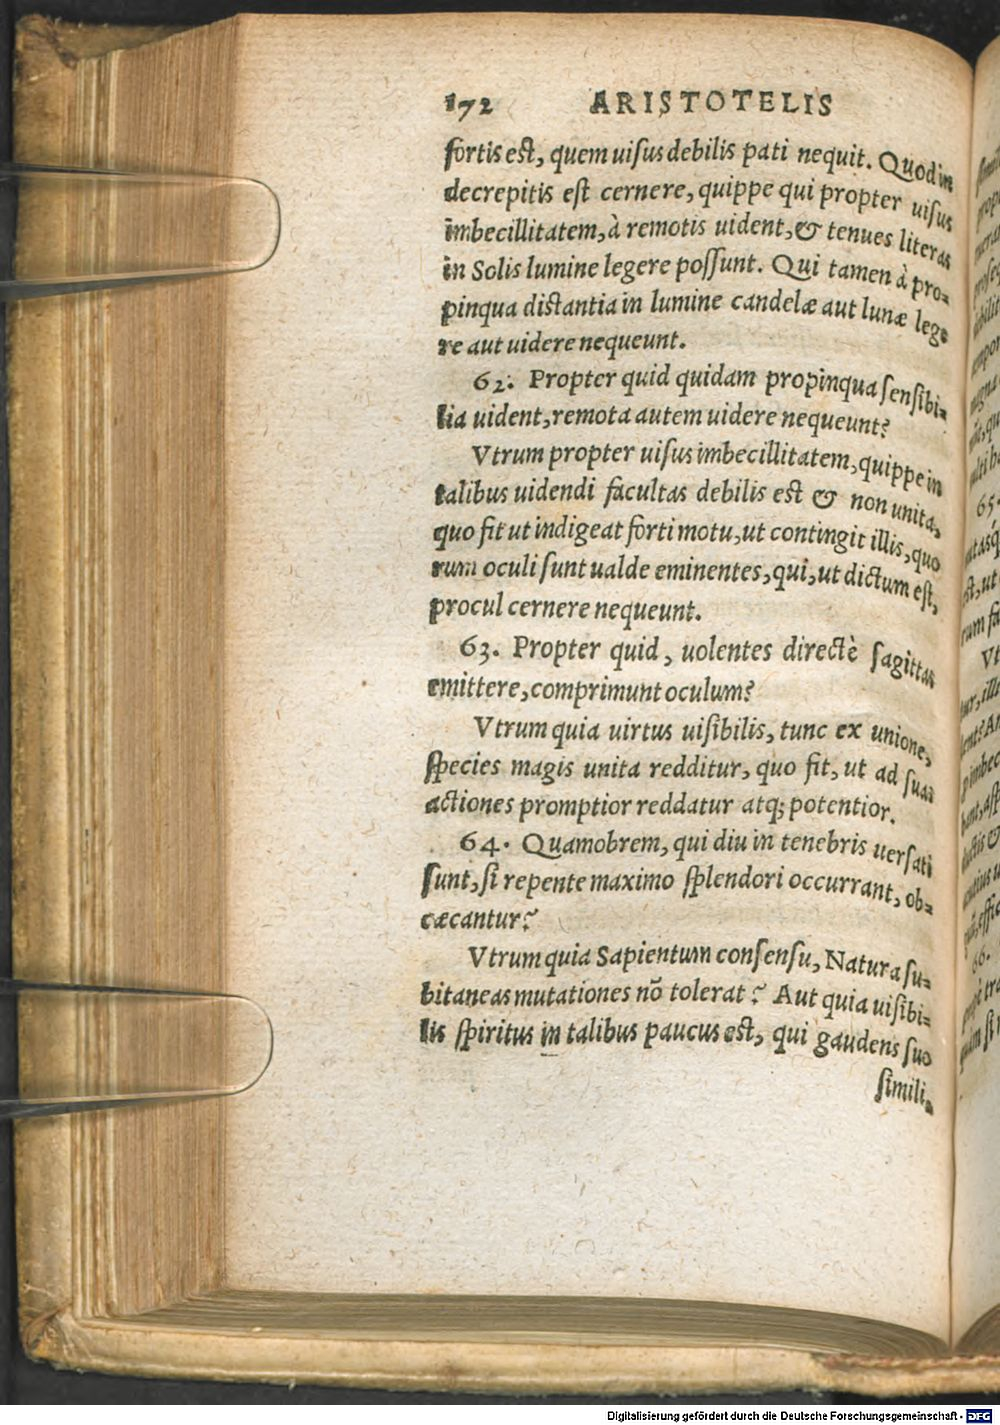 172 ARISTOTELIS
fortis est, quem uisus debilis pati nequit. Quod in
decrepitis est cernere, quippe qui propter uisus
imbecillitatem, à remotis uident, & tenues literas
in Solis lumine legere possunt. Qui tamen à pro-
pinqua distantia in lumine candelæ aut lunæ lege
re aut uidere nequeunt.
62. Propter quid quidam propinqua sensibi-
lia uident, remota autem uidere nequeunt?
Vtrum propter uisus imbecillitatem, quippe in
talibus uidendi facultas debilis est & non unita,
quo fit ut indigeat forti motu, ut contingit illis, quo
rum oculi sunt ualde eminentes, qui, ut dictum est,
procul cernere nequeunt.
63. Propter quid, uolentes directè sagittas
emittere, comprimunt oculum?
Vtrum quia uirtus uisibilis, tunc ex unione,
species magis unita redditur, quo fit, ut ad suas
actiones promptior reddatur atq; potentior.
64. Quamobrem, qui diu in tenebris uersati
sunt, si repente maximo splendori occurrant, ob-
cæcantur?
Vtrum quia Sapientum consensu, Natura su-
bitaneas mutationes nō tolerat? Aut quia uisibi-
lis spiritus in talibus paucus est, qui gaudens suo
simili,
65.
66.
Digitalisierung gefördert durch die Deutsche Forschungsgemeinschaft - DFG